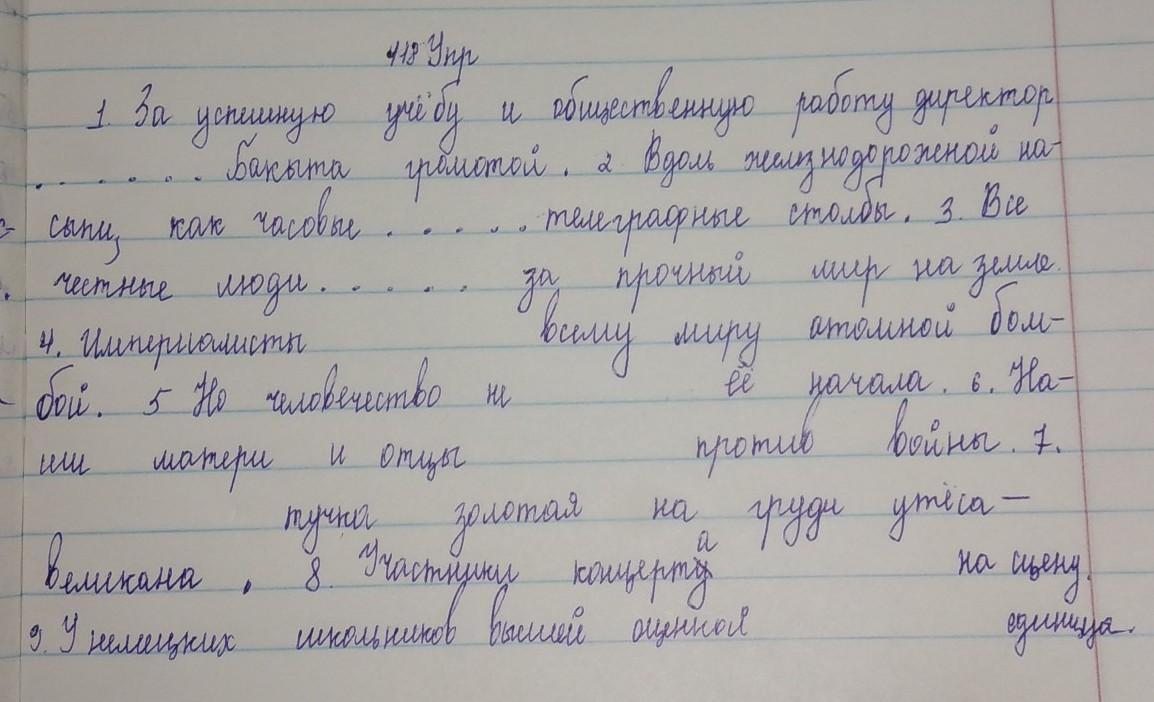 418 Упр
1 За успешную учёбу и общественную работу директор
. . . . . . Бакыта грамотой. 2 Вдоль железнодорожной на-
сыпи, как часовые . . . . . телеграфные столбы. 3. Все
честные люди . . . . . за прочный мир на земле.
4. Империалисты всему миру атомной бом-
бой. 5 Но человечество не её начала. 6. На-
ши матери и отцы против войны. 7.
тучка золотая на груди утёса —
великана. 8. Участники концерта на сцену.
9. У немецких школьников высшей оценкой единица.